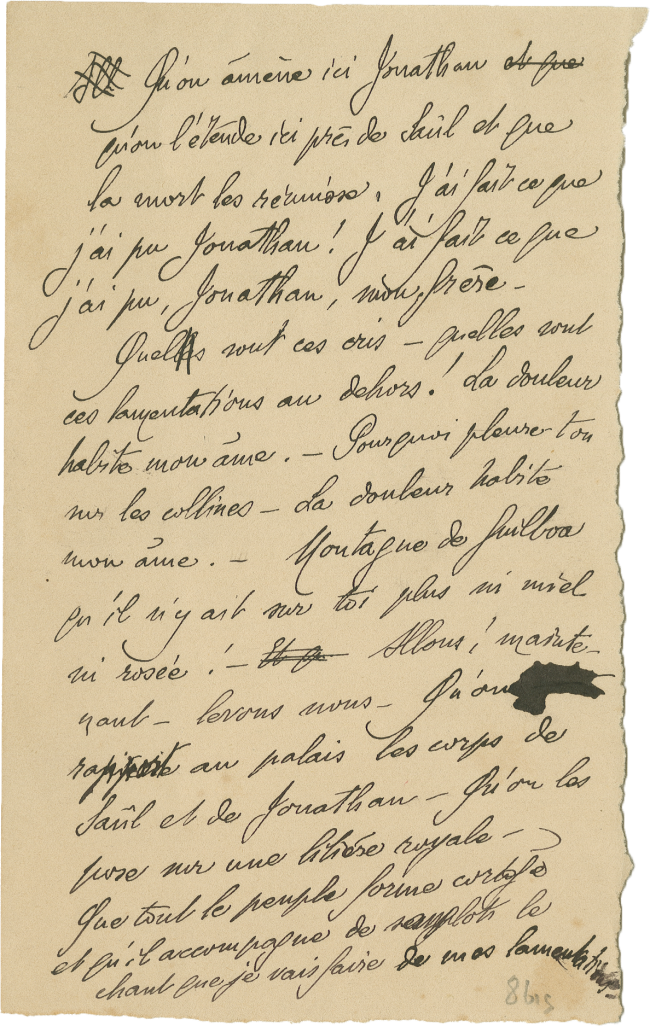 Qu'on amène ici Jonathan et que
qu'on l'étende ici près de Saül et que
la mort les réunisse. J'ai fait ce que
j'ai pu Jonathan! J'ai fait ce que
j'ai pu, Jonathan, mon frère –
Quels sont ces cris – quelles sont
ces lamentations au dehors! La douleur
habite mon âme. – Pourquoi pleure-t'on
sur les collines – La douleur habite
mon âme. – Montagne de Guilboa
qu'il n'y ait sur toi plus ni miel
ni rosée! – Et q Allons! mainte-
nant – levons nous – Qu'on
rapporte au palais les corps de
Saül et de Jonathan – Qu'on les
pose sur une litière royale –
Que tout le peuple forme cortège
et qu'il accompagne de sanglots le
chant que je vais faire de mes lamentations –
8 bis